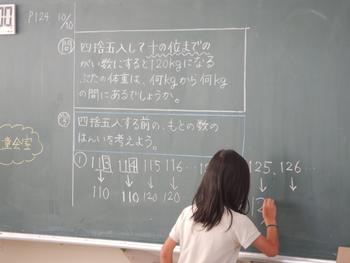 P124 10/10
問 四捨五入して十の位までの
がい数にすると120kgになる
ぶたの体重は、何kgから何kg
の間にあるでしょうか。
学 四捨五入する前の、もとの数の
はんいを考えよう。
童会室
① 113 114 115 116… 125, 126…
↓ ↓ ↓ ↓ ↓ ↓
110 110 120 120